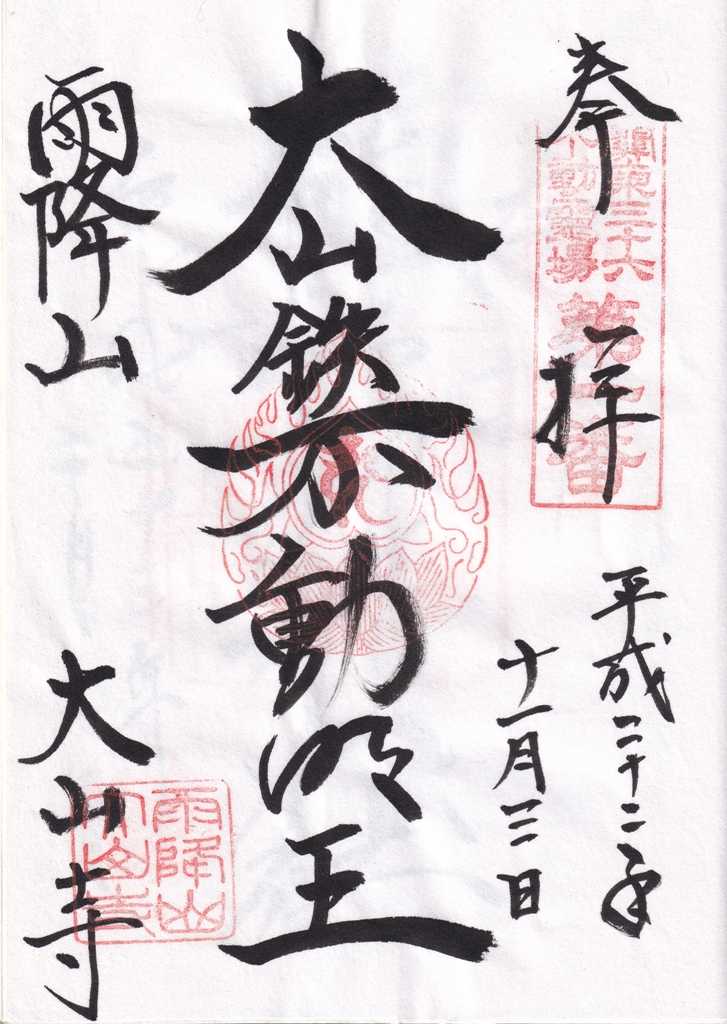 奉拝
關東三十六
不動霊場
第一番
平成二十二年
十一月三日
大山鉄不動明王
雨降山
大山寺
雨降山
大山寺